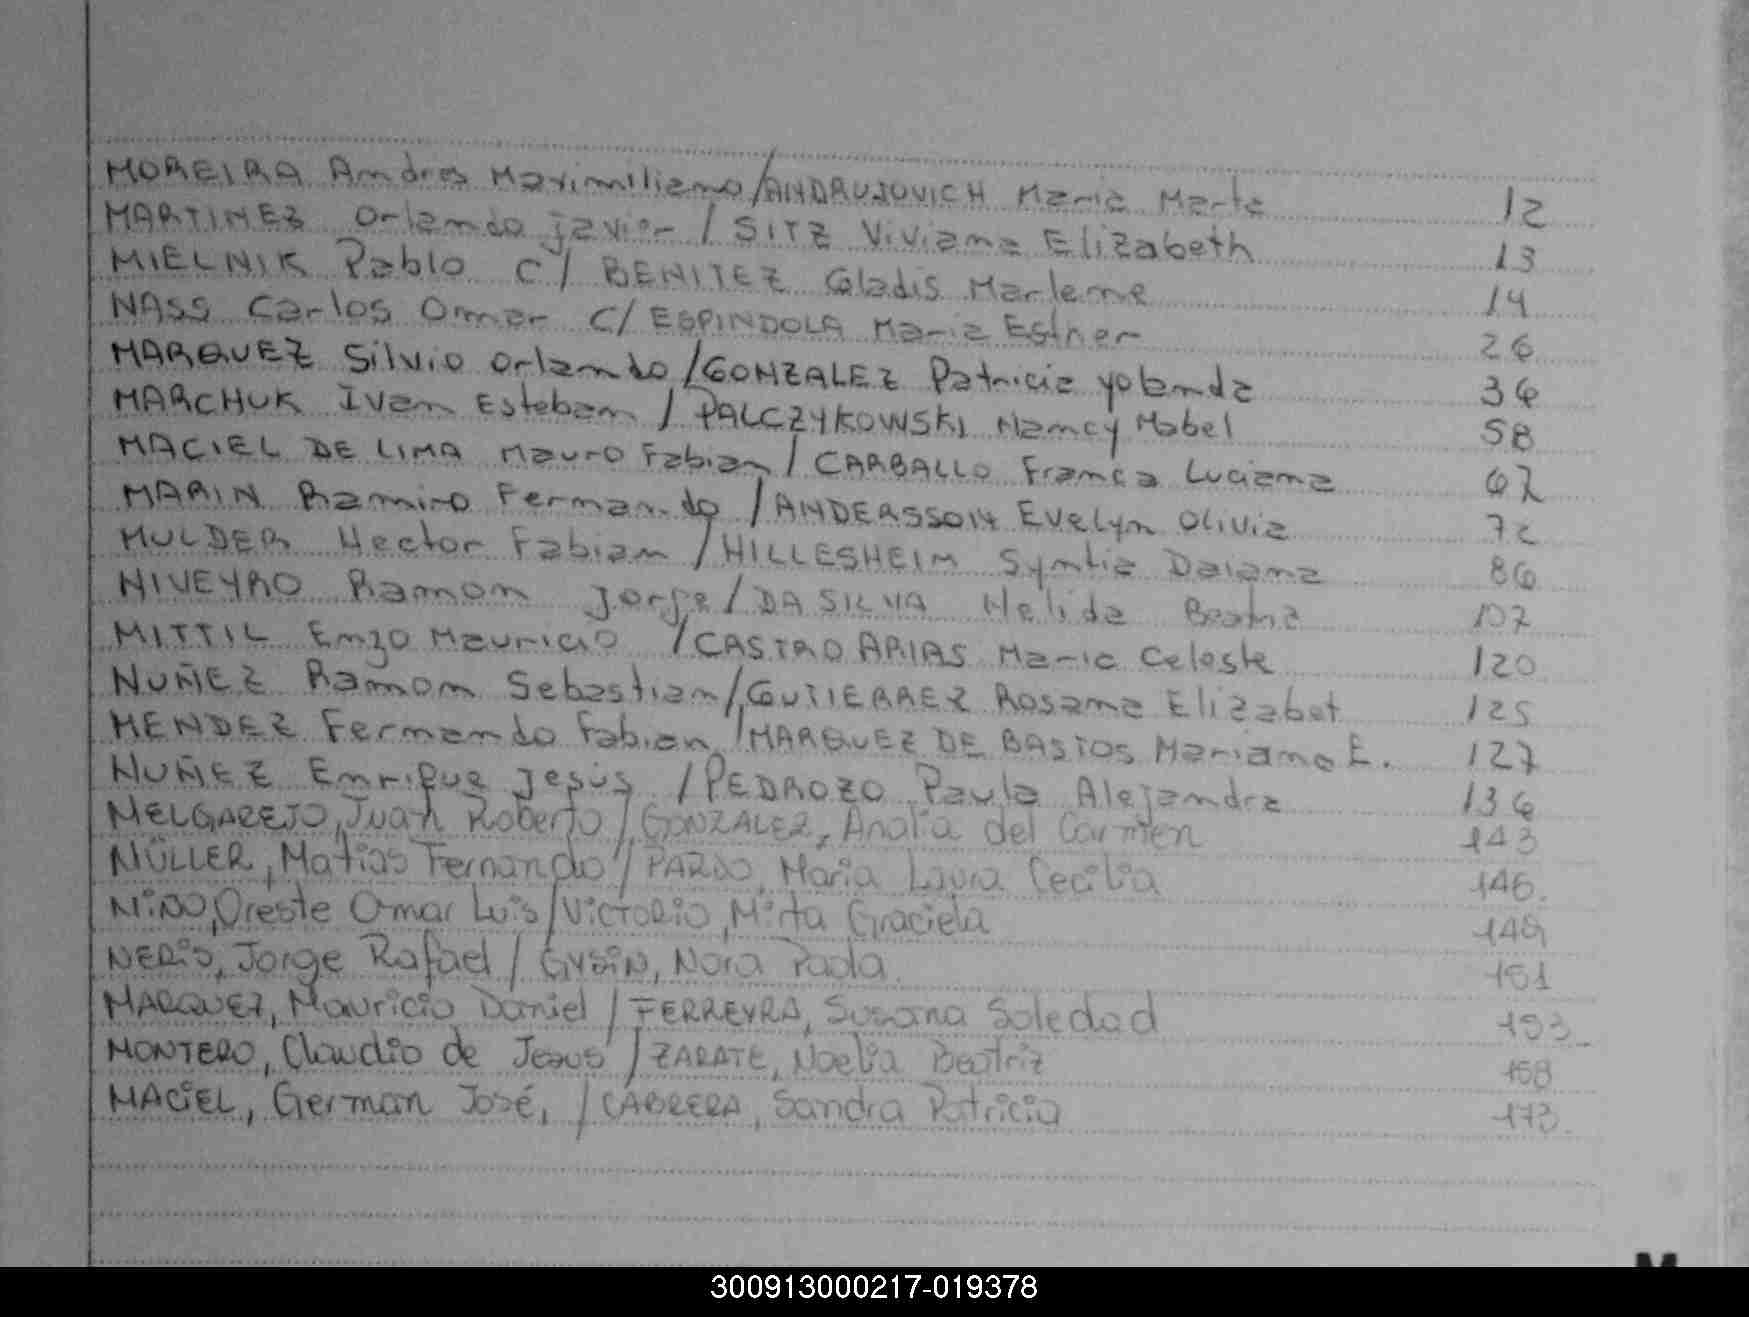 MOREIRA Andres Maximiliano/ANDRUJOVICH Maria Marta 12
MARTINEZ Orlando javier / SITZ Viviana Elizabeth 13
MIELNIK Pablo C/ BENITEZ Gladis Marlene 14
NASS Carlos Omar C/ ESPINDOLA Maria Esther 26
MARQUEZ Silvio Orlando /GONZALEZ Patricia yolanda 36
MARCHUK Ivan Esteban / PALCZYKOWSKI Nancy Mabel 58
MACIEL DE LIMA Mauro Fabian / CARBALLO Franca Luciana 67
MARIN Ramiro Fernando /ANDERSSON Evelyn Olivia 72
MULDER Hector Fabian / HILLESHEIM Syntia Daiana 86
NIVEYRO Ramon Jorge / DA SILVA Nelida Beatriz 107
MITTIL Enzo Mauricio /CASTRO ARIAS Maria Celeste 120
NUÑEZ Ramon Sebastian/GUTIERREZ Rosana Elizabet 125
MENDEZ Fernando Fabian /MARQUEZ DE BASTOS Mariana E. 127
NUÑEZ Enrique Jesús /PEDROZO Paula Alejandra 136
MELGAREJO, Juan Roberto / GONZALEZ, Analia del Carmen 143
MÜLLER, Matias Fernando / PARDO, Maria Laura Cecilia 146.
Oreste Omar Luis / VICTORIO, Mirta Graciela 149
NERIS, Jorge Rafael / GYSIN, Nora Paola. 151
MARQUEZ, Mauricio Daniel / FERREYRA, Susana Soledad 153
MONTERO, Claudio de Jesus / ZARATE, Noelia Beatriz 158
MACIEL, German José, / CABRERA, Sandra Patricia 173.
M
300913000217-019378